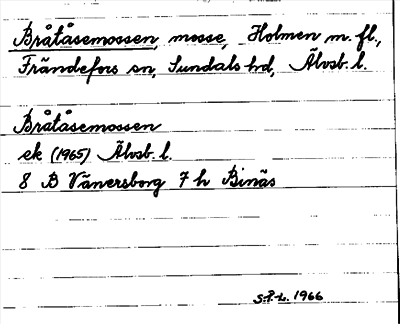 Bråtåsemossen, mosse, Holmen m.fl.,
Frändefors sn, Sundals hd, Älvsb. l.
Bråtåsemossen
ek (1965) Älvsb. l.
8 B Vänersborg 7 h Binäs
1966